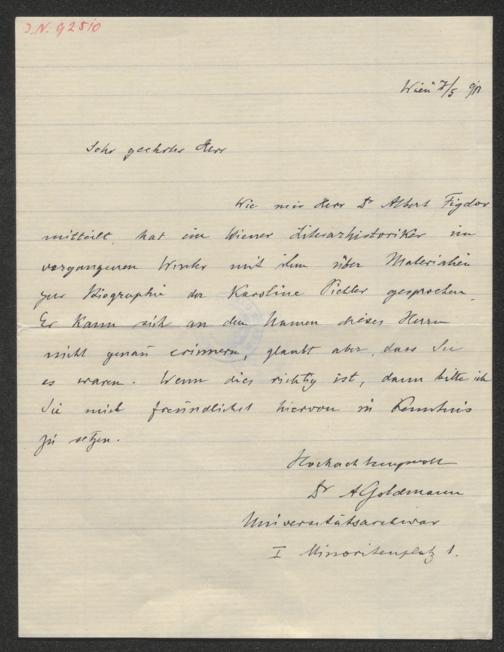 J.N. 92510
Wien 7/5
Sehr geehrter Herr
Wie mir Herr Dr Albert Figdor
mitteilt, hat ein Wiener Literarhistoriker im
vergangenen Winter mit ihm über Materialien
zur Biographie der Karoline Pichler gesprochen.
Er kann sich an den Namen dieses Herrn
nicht genau erinnern, glaubt aber, dass Sie
es waren. Wenn dies richtig ist, dann bitte ich
Sie mich freundlichst hiervon in Kenntnis
zu setzen.
Hochachtungsvoll
Dr AGoldmann
Universitätsarchivar
I Minoritenplatz 1.